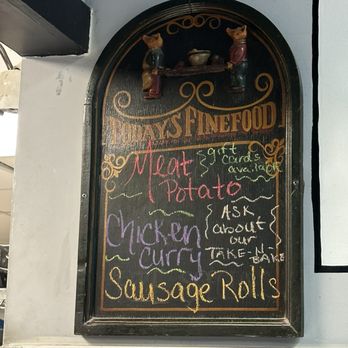 TODAY'S FINEFOOD
Meat
Potato
gift
cards
available
Chicken
curry
ASK
about
our
TAKE-N-
BAKE
Sausage Rolls